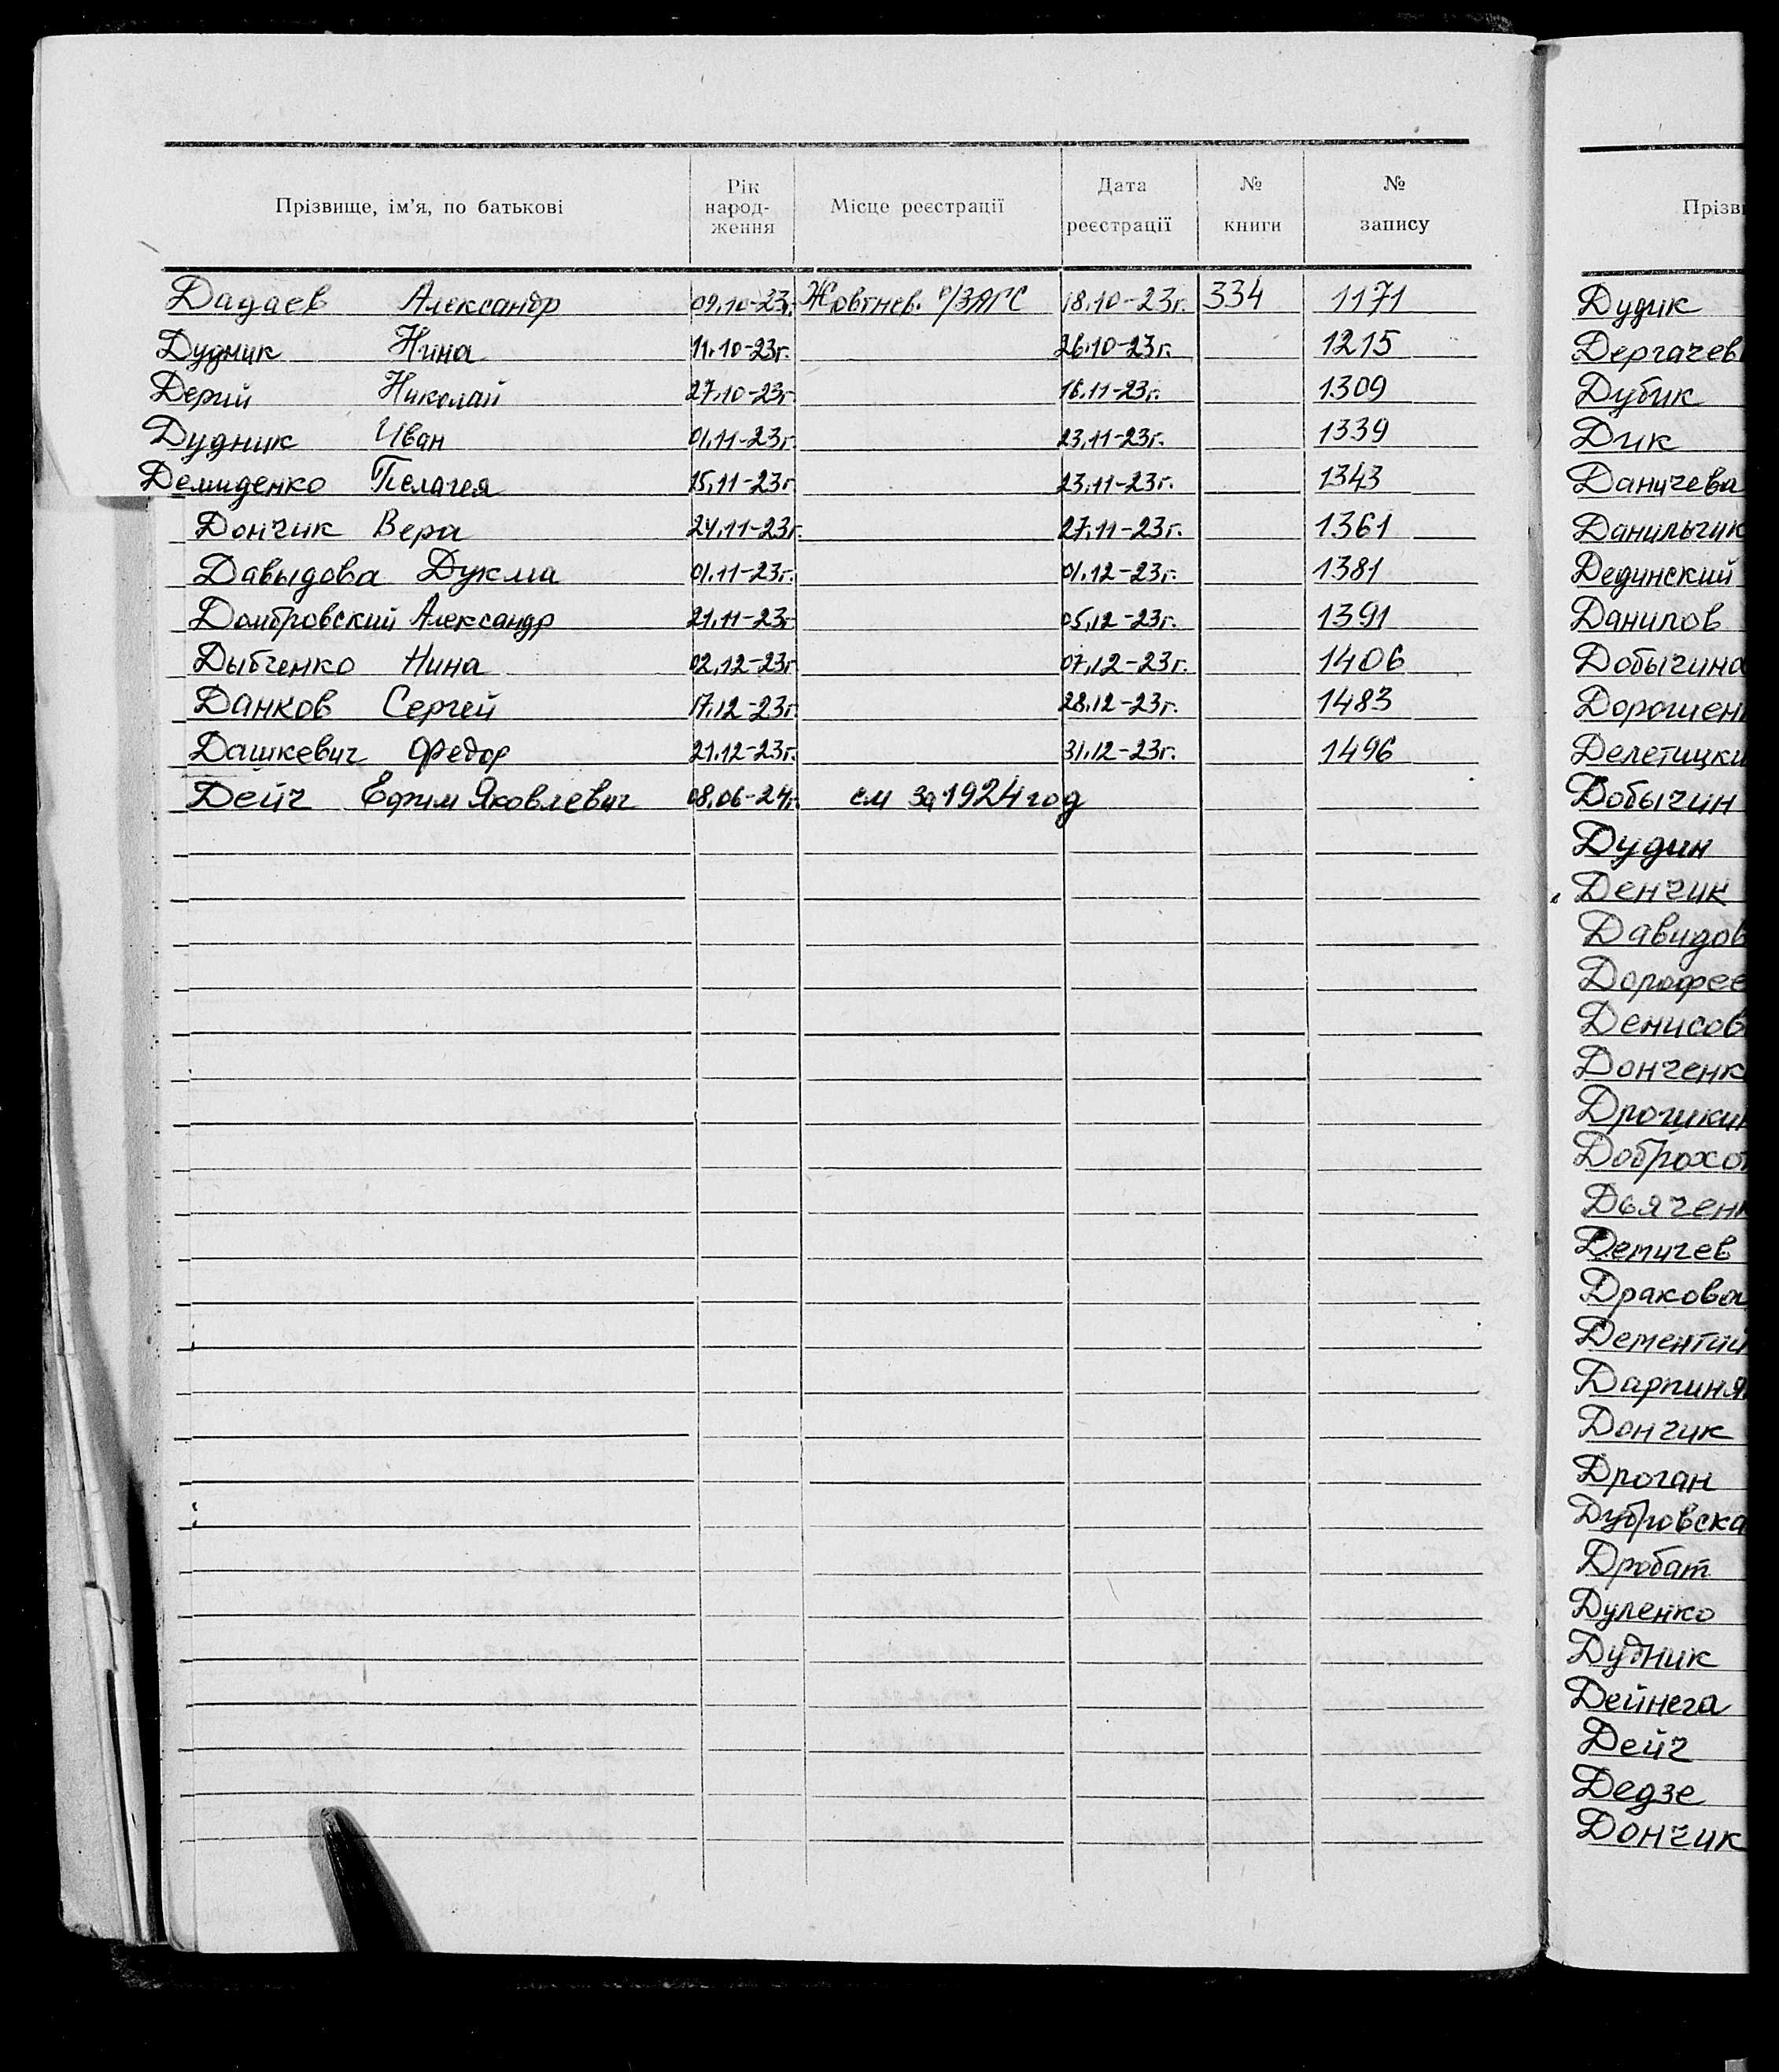 Прізвище, ім'я, по батькові | Рік народ-ження | Місце реєстрації | Дата реєстрації | № книги | № запису
Дадаев Александр 09.10-23г. Жовтнев. о/ЗАГС 18.10-23г. 334 1171
Дудник Нина 11.10-23г. 26.10-23г. 1215
Дерий Николай 27.10-23г. 16.11-23г. 1309
Дудник Иван 01.11-23г. 23.11-23г. 1339
Демиденко Пелагея 15.11-23г. 23.11-23г. 1343
Дончик Вера 24.11-23г. 27.11-23г. 1361
Давыдова 01.11-23г. 01.12-23г. 1381
Домбровский Александр 21.11-23г. 05.12-23г. 1391
Дыбченко Нина 02.12-23г. 07.12-23г. 1406
Данков Сергей 17.12-23г. 28.12-23г. 1483
Дашкевич Федор 21.12-23г. 31.12-23г. 1496
Дейч Ефим Яковлевич 08.06-24г. см за 1924 год
Прізв
Дудик
Дергачев
Дубик
Дик
Даничева
Данильчик
Дединский
Данилов
Добычина
Дорошен
Делетицки
Добычин
Дудин
Денчик
Давидов
Дорофее
Денисов
Донченк
Дрошкин
Доброхот
Дьячен
Демичев
Дракова
Дементий
Дарпиня
Дончик
Дроган
Дубровска
Дробат
Дуленко
Дудник
Дейнега
Дейч
Дедзе
Дончик